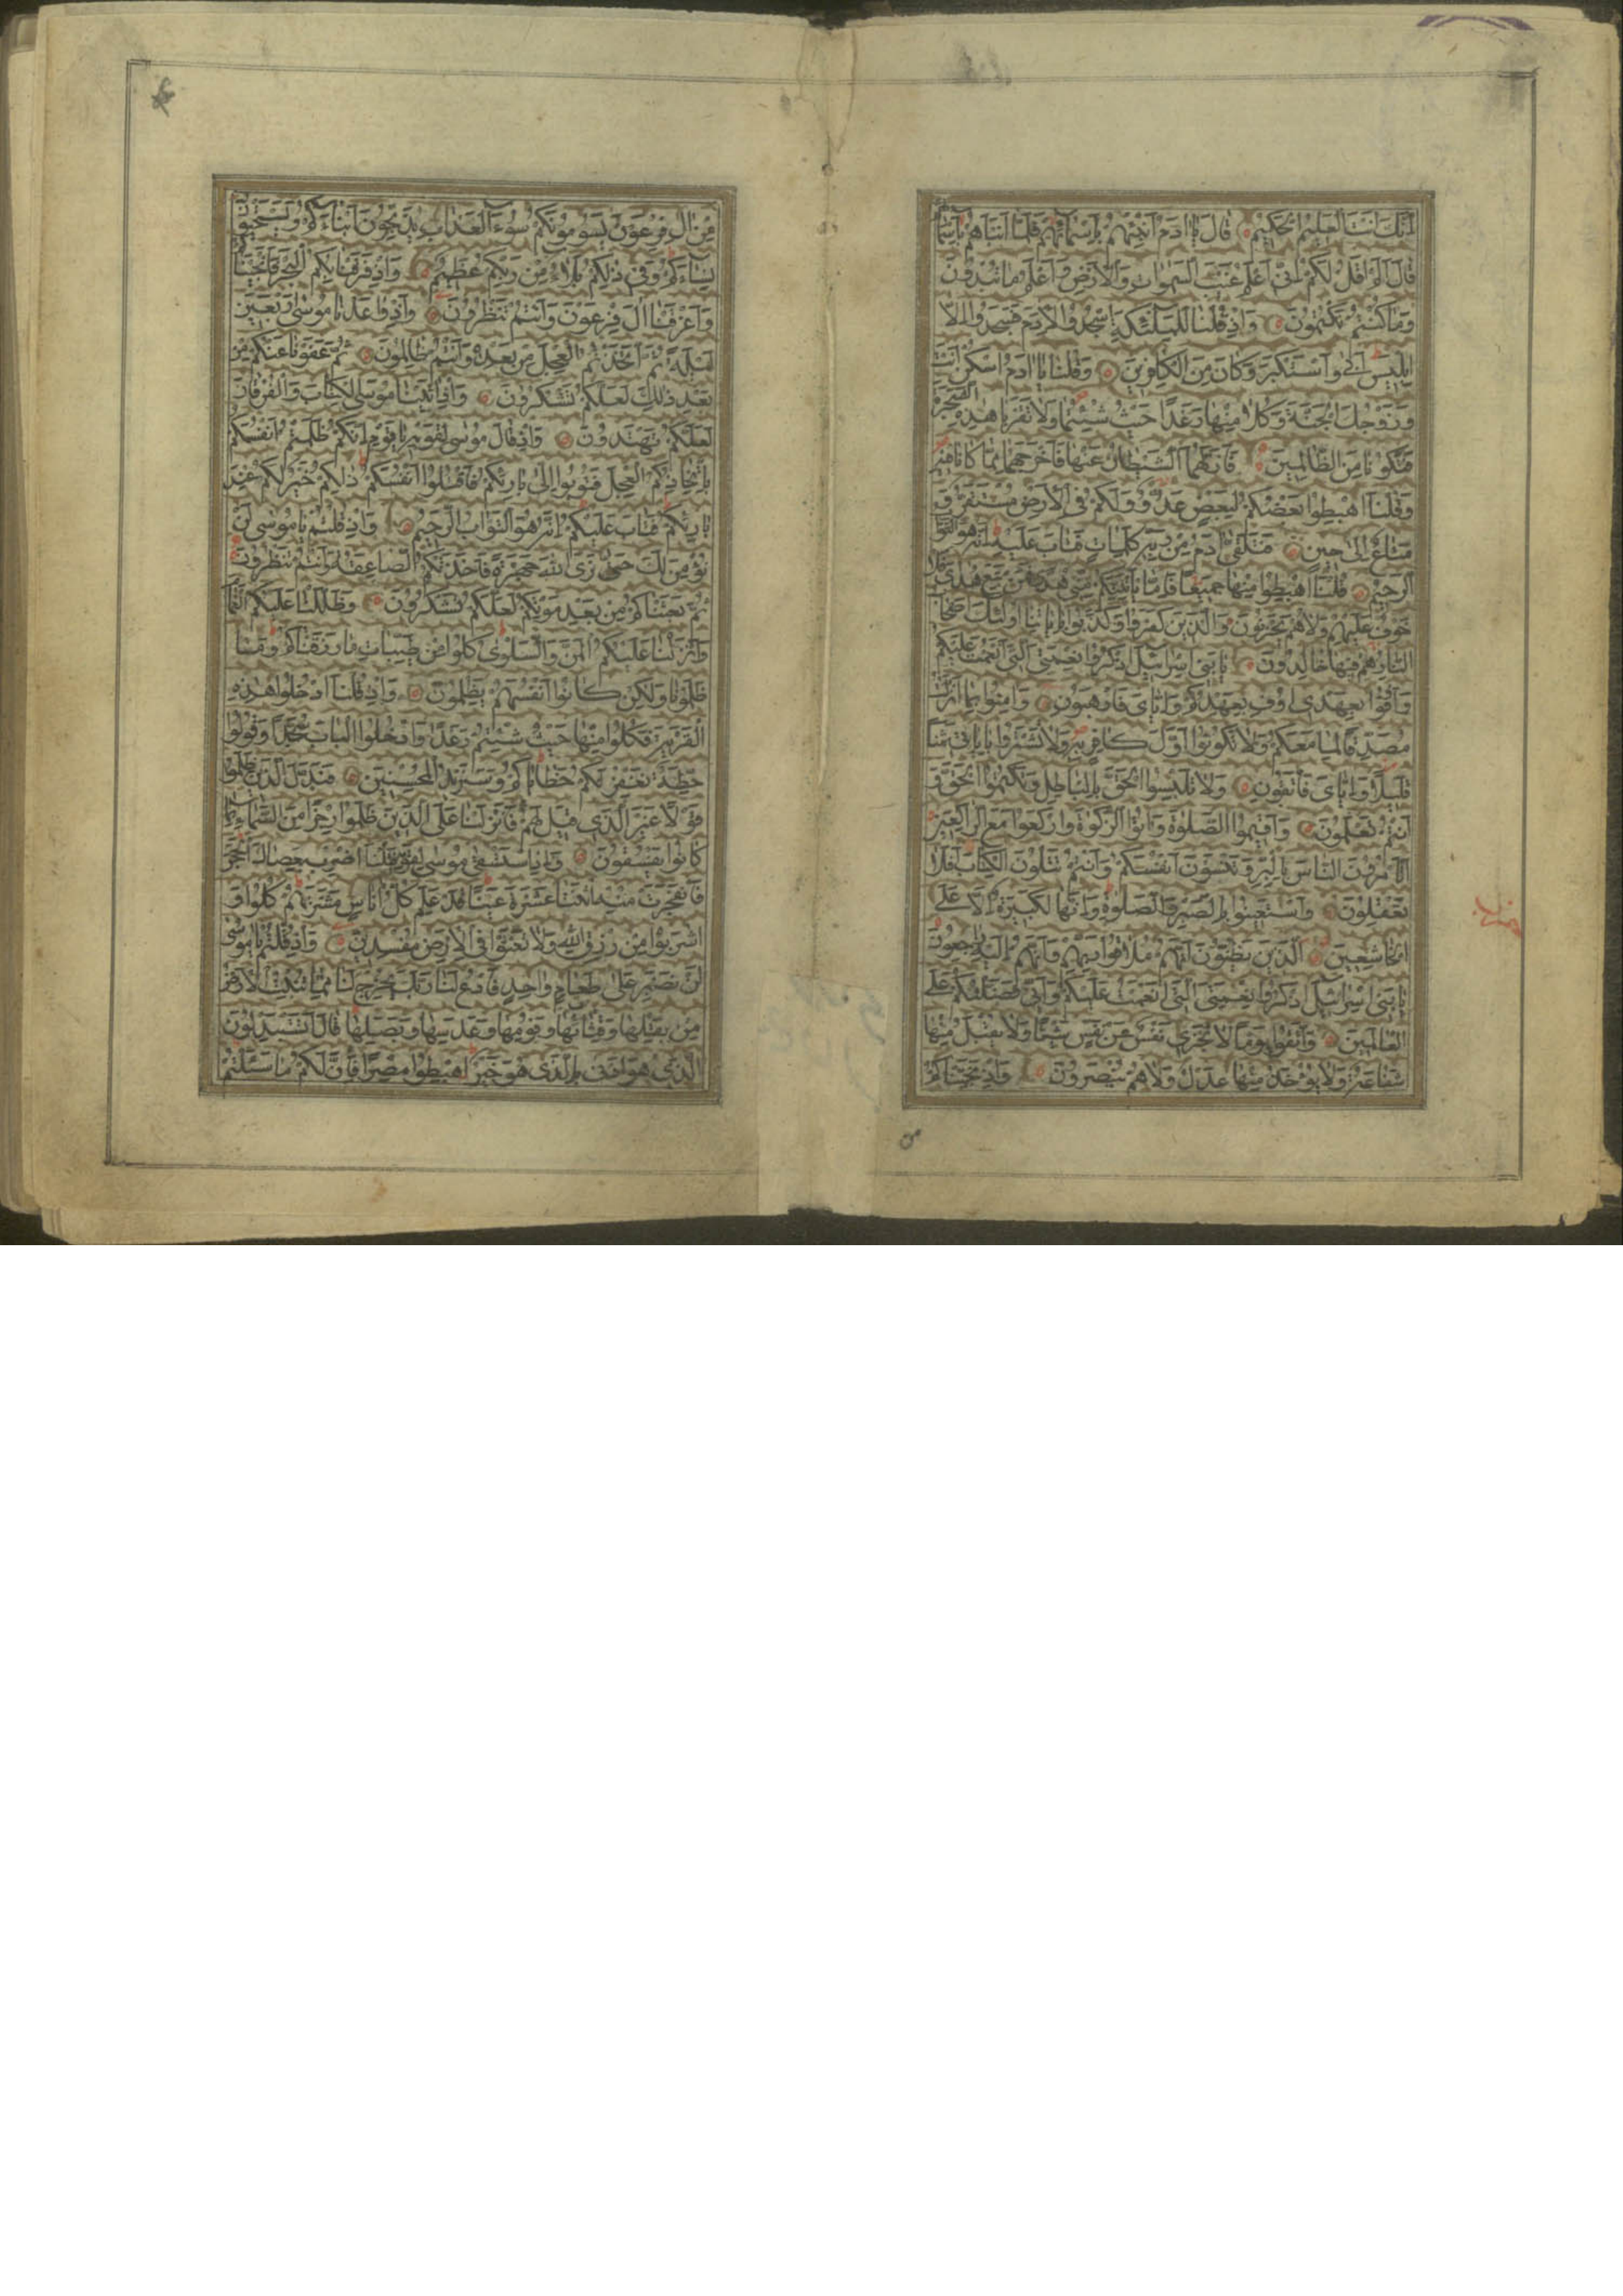 اِنَّكَ اَنْتَ الْعَلِيمُ الْحَكِيمُ قَالَ يَا اادَمُ اَنْبِئْهُمْ بِاَسْمَآئِهِمْ فَلَمَّا اَنْبَاَهُمْ بِاَسْمَآئِهِمْ
قَالَ اَلَمْ اَقُلْ لَكُمْ اِنِّي اَعْلَمُ غَيْبَ السَّمٰوَاتِ وَالْاَرْضِ وَاَعْلَمُ مَا تُبْدُونَ
وَمَا كُنْتُمْ تَكْتُمُونَ وَاِذْ قُلْنَا لِلْمَلٰٓئِكَةِ اسْجُدُوا لِاٰدَمَ فَسَجَدُوا اِلَّا
اِبْلِيسَ اَبٰى وَاسْتَكْبَرَ وَكَانَ مِنَ الْكَافِرِينَ وَقُلْنَا يَا اادَمُ اسْكُنْ اَنْتَ
وَزَوْجُكَ الْجَنَّةَ وَكُلَا مِنْهَا رَغَدًا حَيْثُ شِئْتُمَا وَلَا تَقْرَبَا هٰذِهِ الشَّجَرَةَ
فَتَكُونَا مِنَ الظَّالِمِينَ فَاَزَلَّهُمَا الشَّيْطَانُ عَنْهَا فَاَخْرَجَهُمَا مِمَّا كَانَا فِيهِ
وَقُلْنَا اهْبِطُوا بَعْضُكُمْ لِبَعْضٍ عَدُوٌّ وَلَكُمْ فِي الْاَرْضِ مُسْتَقَرٌّ وَ
مَتَاعٌ اِلٰى حِينٍ فَتَلَقّٰى اٰدَمُ مِنْ رَبِّهِ كَلِمَاتٍ فَتَابَ عَلَيْهِ اِنَّهُ هُوَ التَّوَّابُ
الرَّحِيمُ قُلْنَا اهْبِطُوا مِنْهَا جَمِيعًا فَاِمَّا يَاْتِيَنَّكُمْ مِنِّي هُدًى فَمَنْ تَبِعَ هُدَايَ فَلَا
خَوْفٌ عَلَيْهِمْ وَلَا هُمْ يَحْزَنُونَ وَالَّذِينَ كَفَرُوا وَكَذَّبُوا بِاٰيَاتِنَا اُولٰئِكَ اَصْحَابُ
النَّارِ هُمْ فِيهَا خَالِدُونَ يَا بَنِي اِسْرَائِيلَ اذْكُرُوا نِعْمَتِيَ الَّتِي اَنْعَمْتُ عَلَيْكُمْ
وَاَوْفُوا بِعَهْدِي اُوفِ بِعَهْدِكُمْ وَاِيَّايَ فَارْهَبُونِ وَاٰمِنُوا بِمَا اَنْزَلْتُ
مُصَدِّقًا لِمَا مَعَكُمْ وَلَا تَكُونُوا اَوَّلَ كَافِرٍ بِهِ وَلَا تَشْتَرُوا بِاٰيَاتِي ثَمَنًا
قَلِيلًا وَاِيَّايَ فَاتَّقُونِ وَلَا تَلْبِسُوا الْحَقَّ بِالْبَاطِلِ وَتَكْتُمُوا الْحَقَّ وَ
اَنْتُمْ تَعْلَمُونَ وَاَقِيمُوا الصَّلٰوةَ وَاٰتُوا الزَّكٰوةَ وَارْكَعُوا مَعَ الرَّاكِعِينَ
اَتَاْمُرُونَ النَّاسَ بِالْبِرِّ وَتَنْسَوْنَ اَنْفُسَكُمْ وَاَنْتُمْ تَتْلُونَ الْكِتَابَ اَفَلَا
تَعْقِلُونَ وَاسْتَعِينُوا بِالصَّبْرِ وَالصَّلٰوةِ وَاِنَّهَا لَكَبِيرَةٌ اِلَّا عَلَى
الْخَاشِعِينَ الَّذِينَ يَظُنُّونَ اَنَّهُمْ مُلَاقُوا رَبِّهِمْ وَاَنَّهُمْ اِلَيْهِ رَاجِعُونَ
يَا بَنِي اِسْرَائِيلَ اذْكُرُوا نِعْمَتِيَ الَّتِي اَنْعَمْتُ عَلَيْكُمْ وَاَنِّي فَضَّلْتُكُمْ عَلَى
الْعَالَمِينَ وَاتَّقُوا يَوْمًا لَا تَجْزِي نَفْسٌ عَنْ نَفْسٍ شَيْئًا وَلَا يُقْبَلُ مِنْهَا
شَفَاعَةٌ وَلَا يُؤْخَذُ مِنْهَا عَدْلٌ وَلَا هُمْ يُنْصَرُونَ وَاِذْ نَجَّيْنَاكُمْ
مِنْ اٰلِ فِرْعَوْنَ يَسُومُونَكُمْ سُوءَ الْعَذَابِ يُذَبِّحُونَ اَبْنَاءَكُمْ وَيَسْتَحْيُونَ
نِسَاءَكُمْ وَفِي ذٰلِكُمْ بَلَاءٌ مِنْ رَبِّكُمْ عَظِيمٌ وَاِذْ فَرَقْنَا بِكُمُ الْبَحْرَ فَاَنْجَيْنَاكُمْ
وَاَغْرَقْنَا اٰلَ فِرْعَوْنَ وَاَنْتُمْ تَنْظُرُونَ وَاِذْ وَاعَدْنَا مُوسٰى اَرْبَعِينَ
لَيْلَةً ثُمَّ اتَّخَذْتُمُ الْعِجْلَ مِنْ بَعْدِهِ وَاَنْتُمْ ظَالِمُونَ ثُمَّ عَفَوْنَا عَنْكُمْ مِنْ
بَعْدِ ذٰلِكَ لَعَلَّكُمْ تَشْكُرُونَ وَاِذْ اٰتَيْنَا مُوسَى الْكِتَابَ وَالْفُرْقَانَ
لَعَلَّكُمْ تَهْتَدُونَ وَاِذْ قَالَ مُوسٰى لِقَوْمِهِ يَا قَوْمِ اِنَّكُمْ ظَلَمْتُمْ اَنْفُسَكُمْ
بِاتِّخَاذِكُمُ الْعِجْلَ فَتُوبُوا اِلٰى بَارِئِكُمْ فَاقْتُلُوا اَنْفُسَكُمْ ذٰلِكُمْ خَيْرٌ لَكُمْ عِنْدَ
بَارِئِكُمْ فَتَابَ عَلَيْكُمْ اِنَّهُ هُوَ التَّوَّابُ الرَّحِيمُ وَاِذْ قُلْتُمْ يَا مُوسٰى لَنْ
نُؤْمِنَ لَكَ حَتّٰى نَرَى اللّٰهَ جَهْرَةً فَاَخَذَتْكُمُ الصَّاعِقَةُ وَاَنْتُمْ تَنْظُرُونَ
ثُمَّ بَعَثْنَاكُمْ مِنْ بَعْدِ مَوْتِكُمْ لَعَلَّكُمْ تَشْكُرُونَ وَظَلَّلْنَا عَلَيْكُمُ الْغَمَامَ
وَاَنْزَلْنَا عَلَيْكُمُ الْمَنَّ وَالسَّلْوٰى كُلُوا مِنْ طَيِّبَاتِ مَا رَزَقْنَاكُمْ وَمَا
ظَلَمُونَا وَلٰكِنْ كَانُوا اَنْفُسَهُمْ يَظْلِمُونَ وَاِذْ قُلْنَا ادْخُلُوا هٰذِهِ
الْقَرْيَةَ فَكُلُوا مِنْهَا حَيْثُ شِئْتُمْ رَغَدًا وَادْخُلُوا الْبَابَ سُجَّدًا وَقُولُوا
حِطَّةٌ نَغْفِرْ لَكُمْ خَطَايَاكُمْ وَسَنَزِيدُ الْمُحْسِنِينَ فَبَدَّلَ الَّذِينَ ظَلَمُوا
قَوْلًا غَيْرَ الَّذِي قِيلَ لَهُمْ فَاَنْزَلْنَا عَلَى الَّذِينَ ظَلَمُوا رِجْزًا مِنَ السَّمَاءِ بِمَا
كَانُوا يَفْسُقُونَ وَاِذِ اسْتَسْقٰى مُوسٰى لِقَوْمِهِ فَقُلْنَا اضْرِبْ بِعَصَاكَ الْحَجَرَ
فَانْفَجَرَتْ مِنْهُ اثْنَتَا عَشْرَةَ عَيْنًا قَدْ عَلِمَ كُلُّ اُنَاسٍ مَشْرَبَهُمْ كُلُوا وَ
اشْرَبُوا مِنْ رِزْقِ اللّٰهِ وَلَا تَعْثَوْا فِي الْاَرْضِ مُفْسِدِينَ وَاِذْ قُلْتُمْ يَا مُوسٰى
لَنْ نَصْبِرَ عَلٰى طَعَامٍ وَاحِدٍ فَادْعُ لَنَا رَبَّكَ يُخْرِجْ لَنَا مِمَّا تُنْبِتُ الْاَرْضُ
مِنْ بَقْلِهَا وَقِثَّائِهَا وَفُومِهَا وَعَدَسِهَا وَبَصَلِهَا قَالَ اَتَسْتَبْدِلُونَ
الَّذِي هُوَ اَدْنٰى بِالَّذِي هُوَ خَيْرٌ اهْبِطُوا مِصْرًا فَاِنَّ لَكُمْ مَا سَاَلْتُمْ